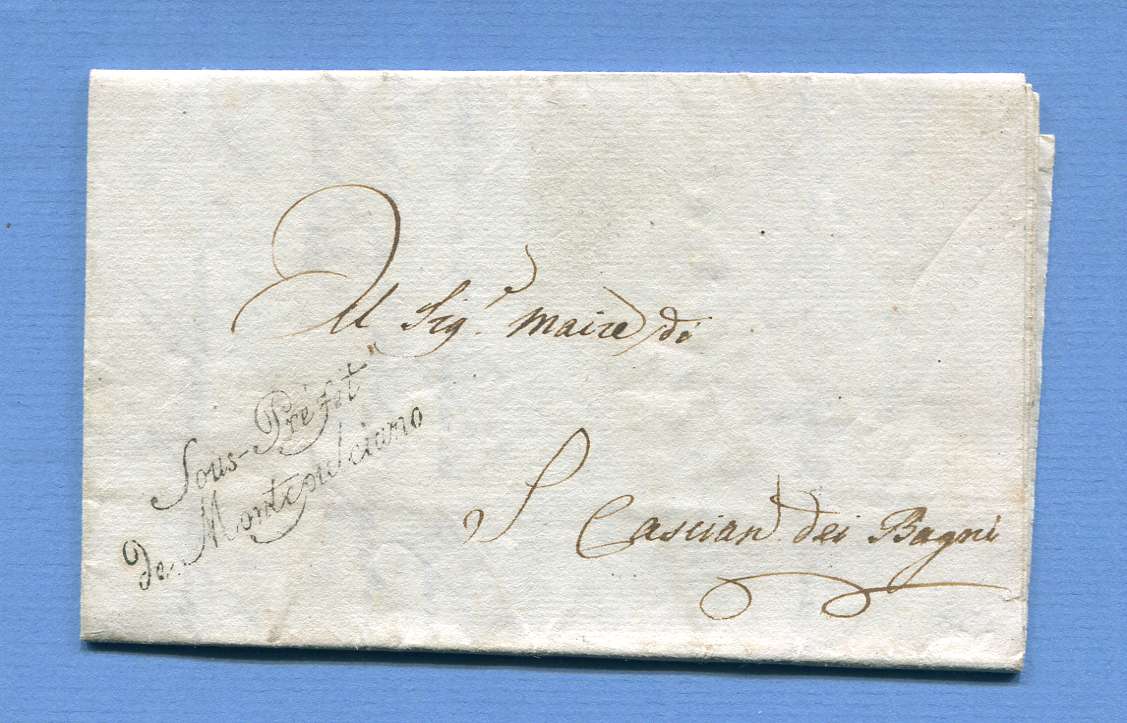 Al Sig.e Maire di
Sous-Préfet
De Montepulciano
S Casciano dei Bagni